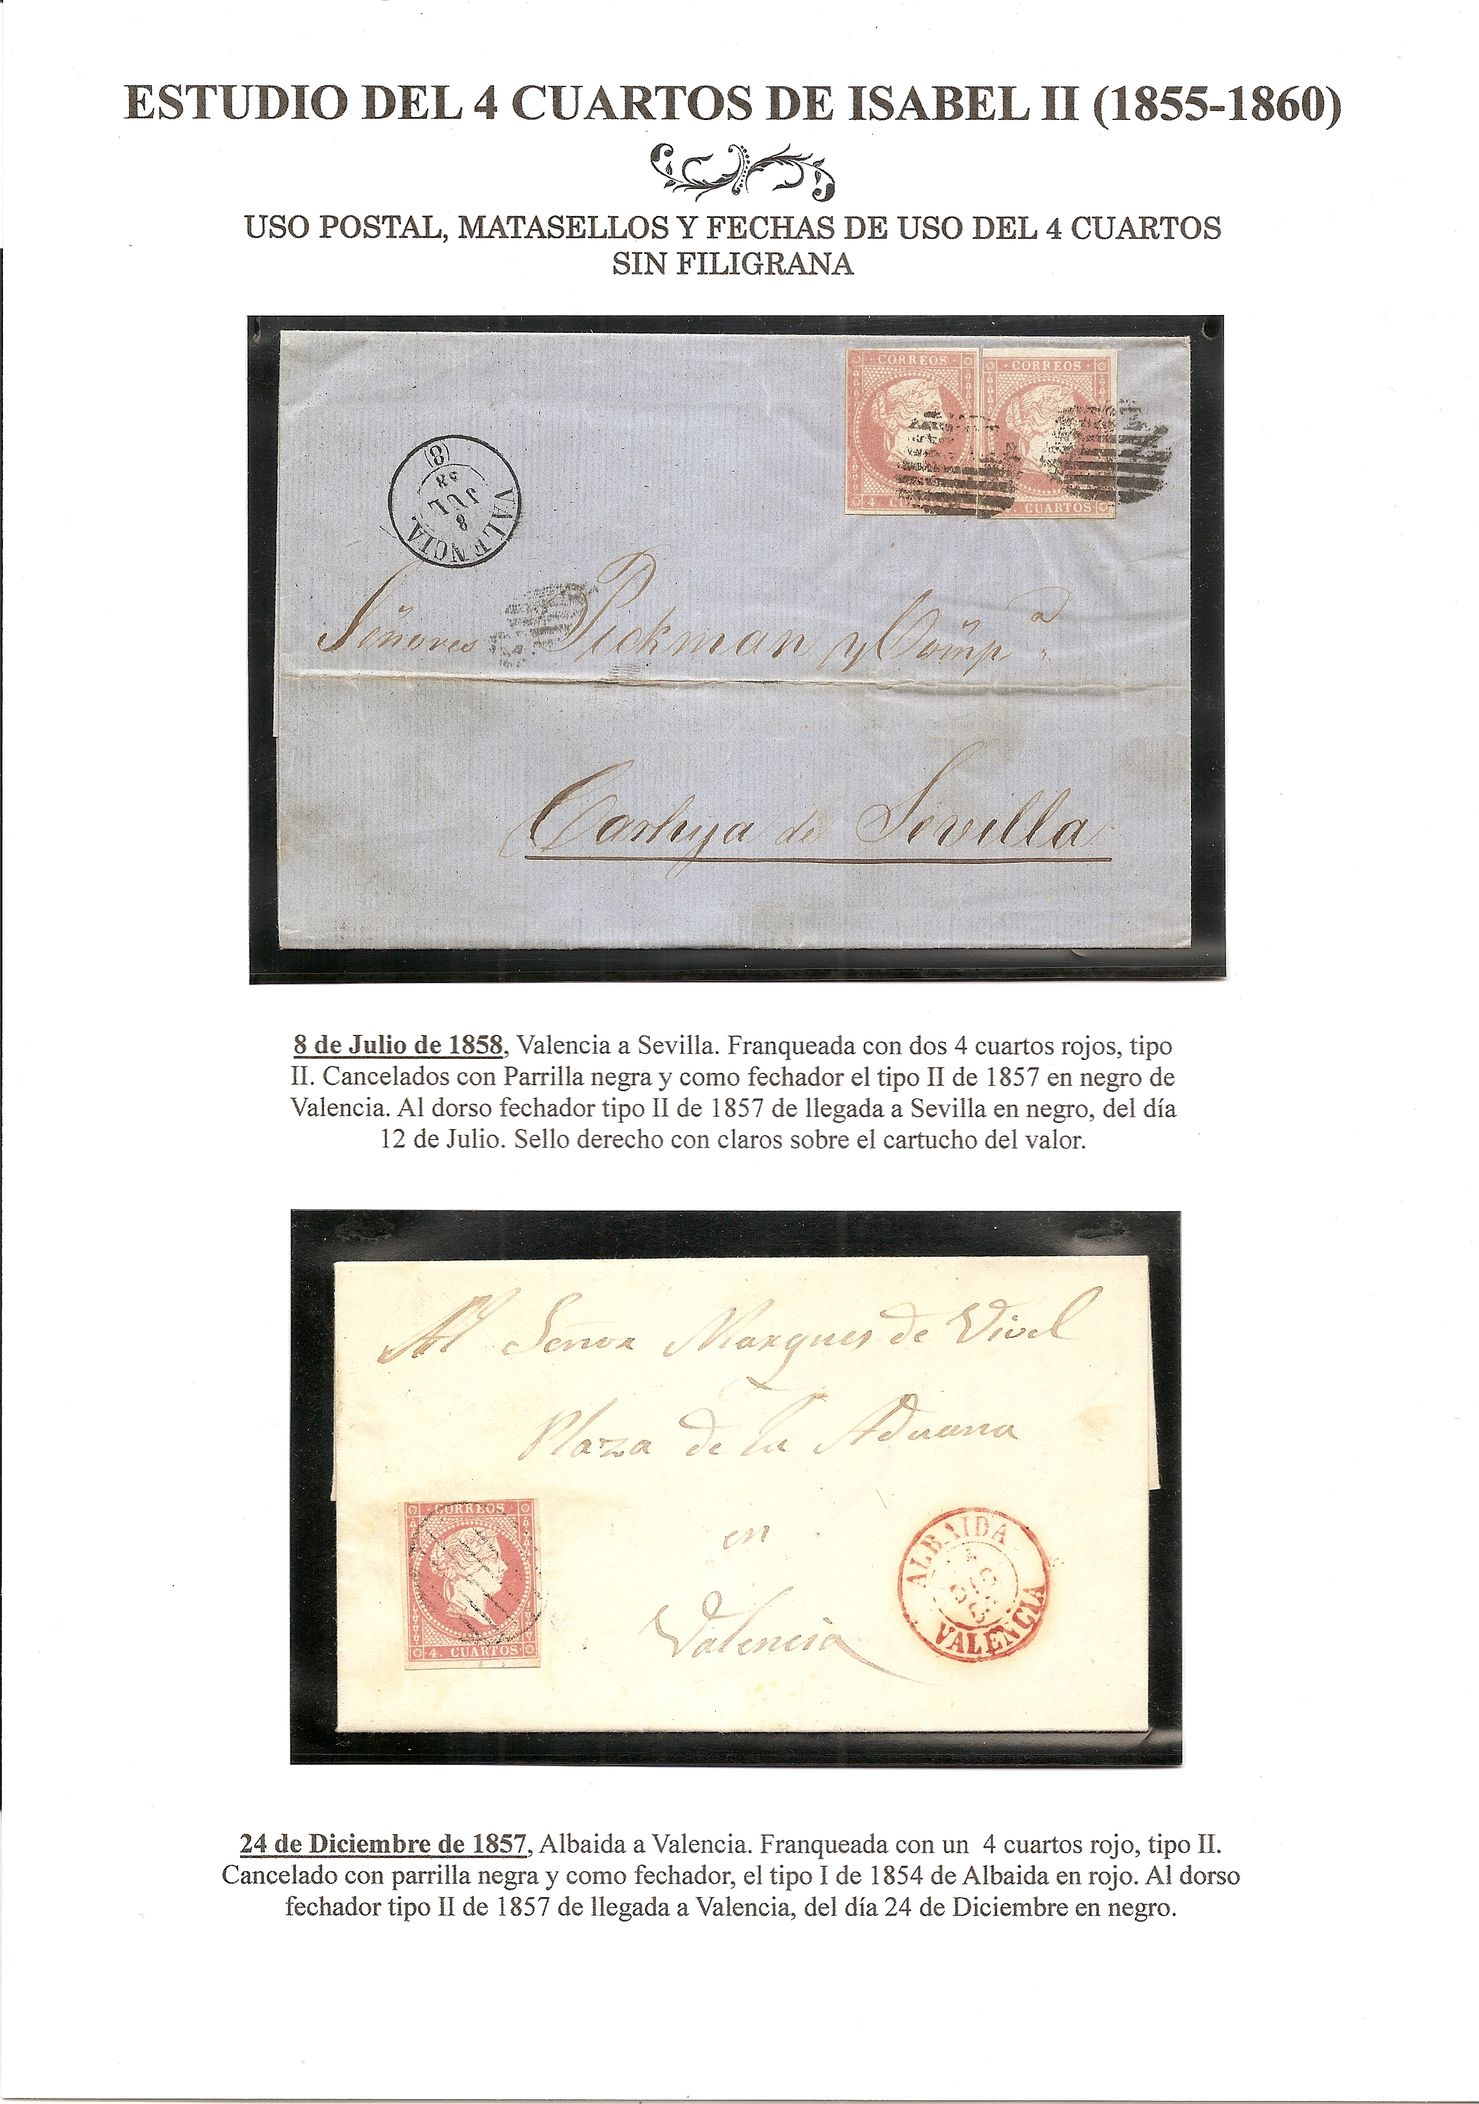 ESTUDIO DEL 4 CUARTOS DE ISABEL II (1855-1860)
USO POSTAL, MATASELLOS Y FECHAS DE USO DEL 4 CUARTOS
SIN FILIGRANA
CORREOS
CORREOS
4. CU
CUARTOS
VALENCIA
8
JUL
58
(8)
Señores Pickman y Comp.ª
Cartuja de Sevilla
8 de Julio de 1858, Valencia a Sevilla. Franqueada con dos 4 cuartos rojos, tipo
II. Cancelados con Parrilla negra y como fechador el tipo II de 1857 en negro de
Valencia. Al dorso fechador tipo II de 1857 de llegada a Sevilla en negro, del día
12 de Julio. Sello derecho con claros sobre el cartucho del valor.
Al Señor Marques de Vivel
Plaza de la Aduana
en
Valencia
CORREOS
4. CUARTOS
ALBAIDA
VALENCIA
24 de Diciembre de 1857, Albaida a Valencia. Franqueada con un 4 cuartos rojo, tipo II.
Cancelado con parrilla negra y como fechador, el tipo I de 1854 de Albaida en rojo. Al dorso
fechador tipo II de 1857 de llegada a Valencia, del día 24 de Diciembre en negro.